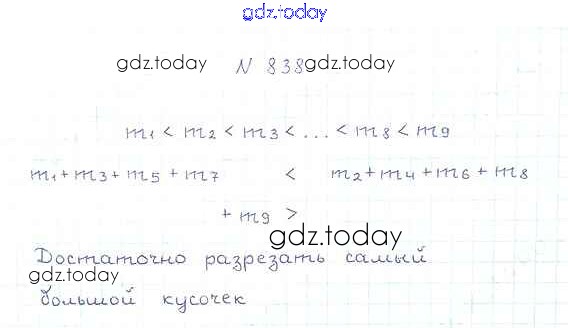 gdz.today
gdz.today N 838 gdz.today
m1 < m2 < m3 < ... < m8 < m9
m1 + m3 + m5 + m7 < m2 + m4 + m6 + m8
+ m9 >
gdz.today
Достаточно разрезать самый
gdz.today
большой кусочек